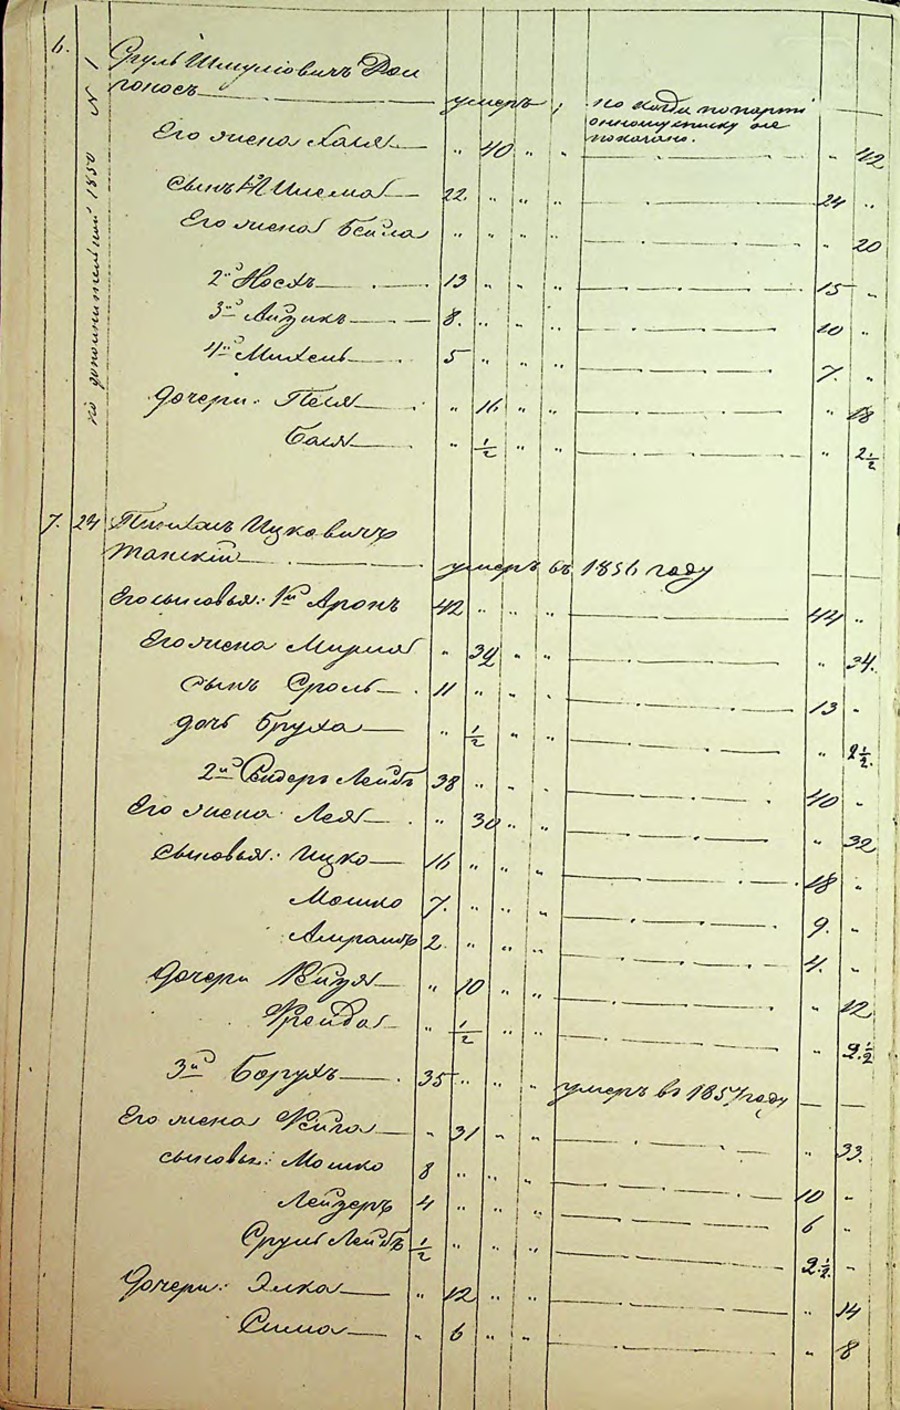 6. Сруль Шмулiовичъ Дол
гоносъ — умеръ, но когда по парті
онному списку не
показано.
по дополнительной 1850 № 1
Его жена Хая — " 40 " " — " 42
сынъ 1й Шлема — 22 " " " — 24 "
Его жена Бейла " " " " — " 20
2й Носхъ — 13 " " " — 15 "
3й Айзикъ — 8. " " " — 10 "
4й Михель — 5 " " " — 7. "
дочери: Песя — " 16 " " — " 18
Бася — " ½ " " — " 2½
7. 24 Пинхасъ Ицковичъ
Танскій — умеръ въ 1856 году —
Его сыновья: 1й Аронъ 42 " " " — 44 "
Его жена Мирля " 32 " " — " 34.
сынъ Сроль — 11 " " " — 13 "
дочь Бруха — " ½ " " — " 2½.
2й Сендеръ Лейбъ 38 " " " — 40 "
Его жена Лея — " 30 " " — " 32
сыновья: Ицко — 16 " " " — 18 "
Мошко 7. " " " — 9. "
Амрамъ 2. " " " — 4. "
дочери Рейзя — " 10 " " — " 12
Фрейда — " ½ " " — " 2½
3й Борухъ — 35 " " " умеръ въ 1857 году —
Его жена Фейга — " 31 " " — " 33.
сыновья: Мошко 8 " " " — 10 "
Лейзеръ 4 " " " — 6 "
Сруль Лейбъ ½ " " " — 2½. "
Дочери: Элка — " 12 " " — " 14
Сима — " 6 " " — " 8